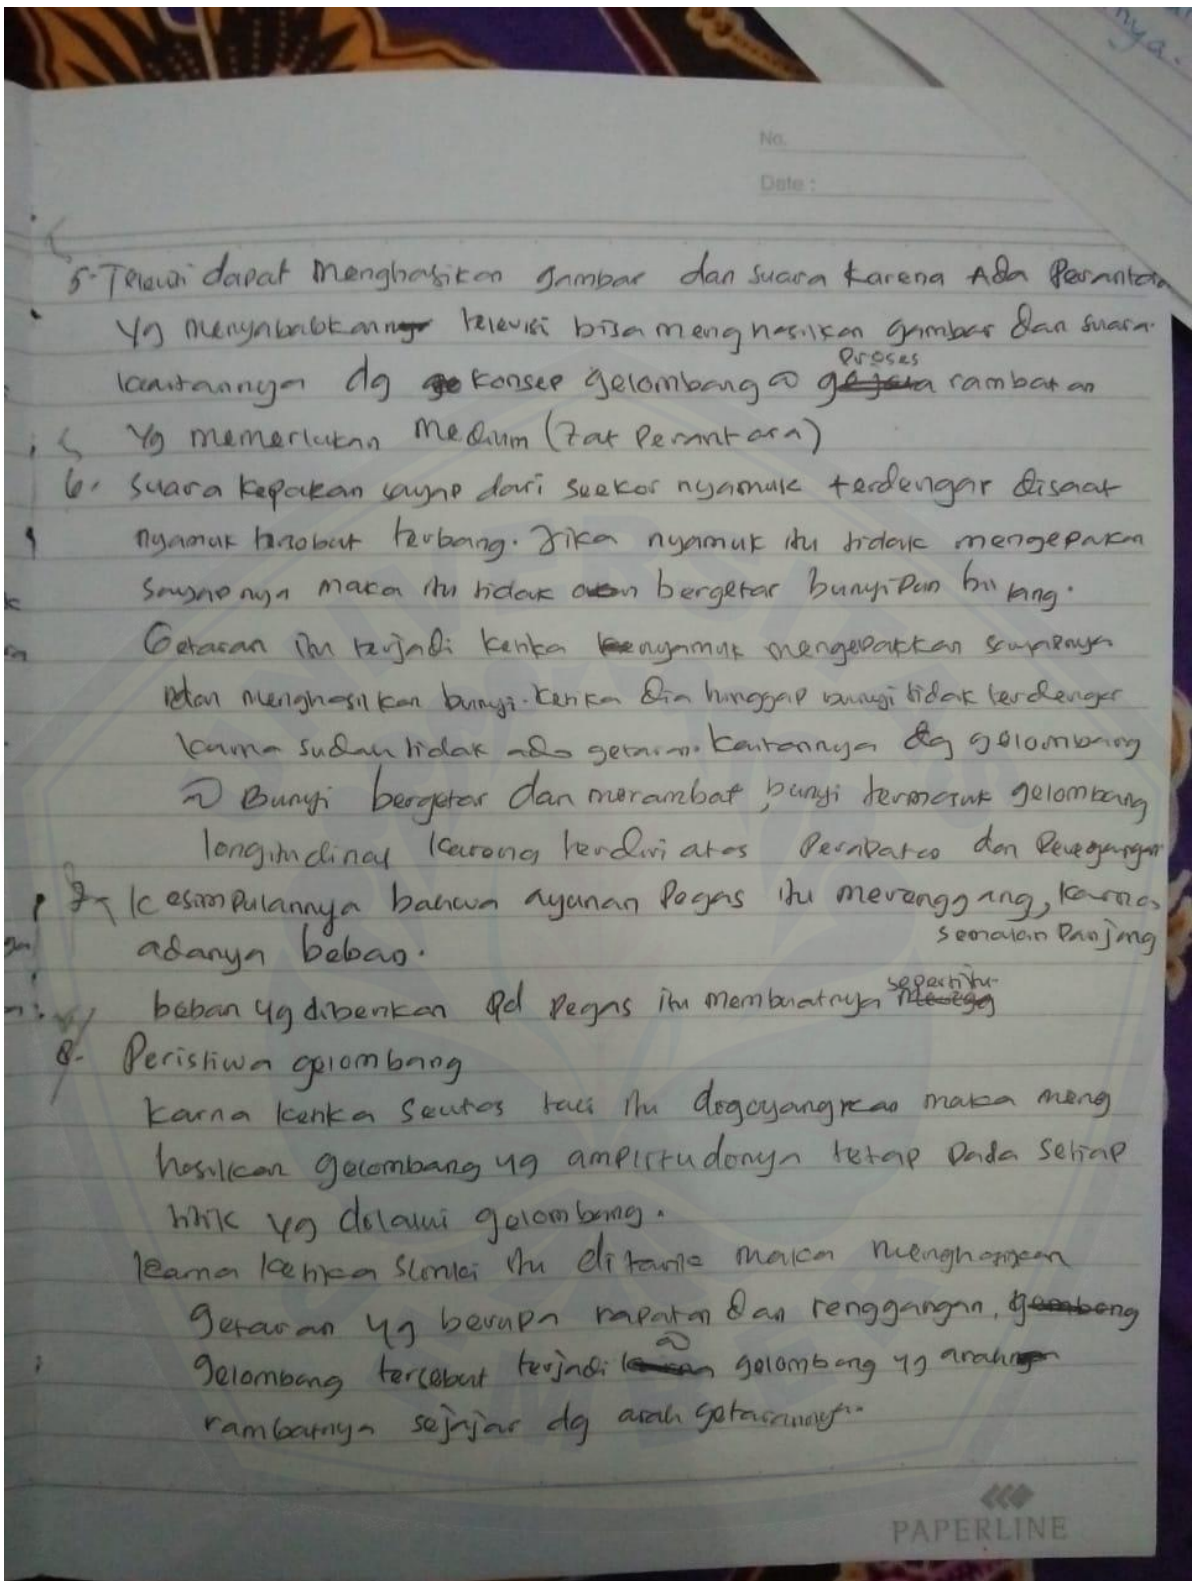 nya.
No.
Date :
5. Televisi dapat menghasilkan gambar dan suara karena Ada Perantara
yg menyababkan televisi bisa menghasilkan gambar dan suara.
kaitannya dg konsep gelombang ~ Proses rambatan
yg memerlukan medium (zat Perantara)
6. suara kepakan sayap dari seekor nyamuk terdengar disaat
nyamuk tersebut terbang. Jika nyamuk itu tidak mengepakan
sayapnya maka itu tidak akan bergetar bunyi pun
Getaran itu terjadi ketika nyamuk mengepakkan sayapnya
dan menghasilkan bunyi. Ketika dia hinggap bunyi tidak terdengar
karna sudah tidak ada getaran. kaitannya dg gelombang
~ Bunyi bergetar dan merambat, bunyi termasuk gelombang
longitudinal karena terdiri atas Perapatan dan Peregangan
7. Kesimpulannya bahwa ayunan Pegas itu merenggang, karna
adanya beban. semakin Panjang
beban yg diberikan pd Pegas itu membuatnya seperti itu
8. Peristiwa gelombang
karna ketika seutas tali itu digoyangkan maka meng
hasilkan gelombang yg amplitudonya tetap pada setiap
titik yg dilalui gelombang.
karna ketika slinki itu ditarik maka menghasilkan
getaran yg berupa rapatan dan renggangan.
gelombang tersebut terjadi ~ gelombang yg arah
rambatnya sejajar dg arah getarannya.
PAPERLINE